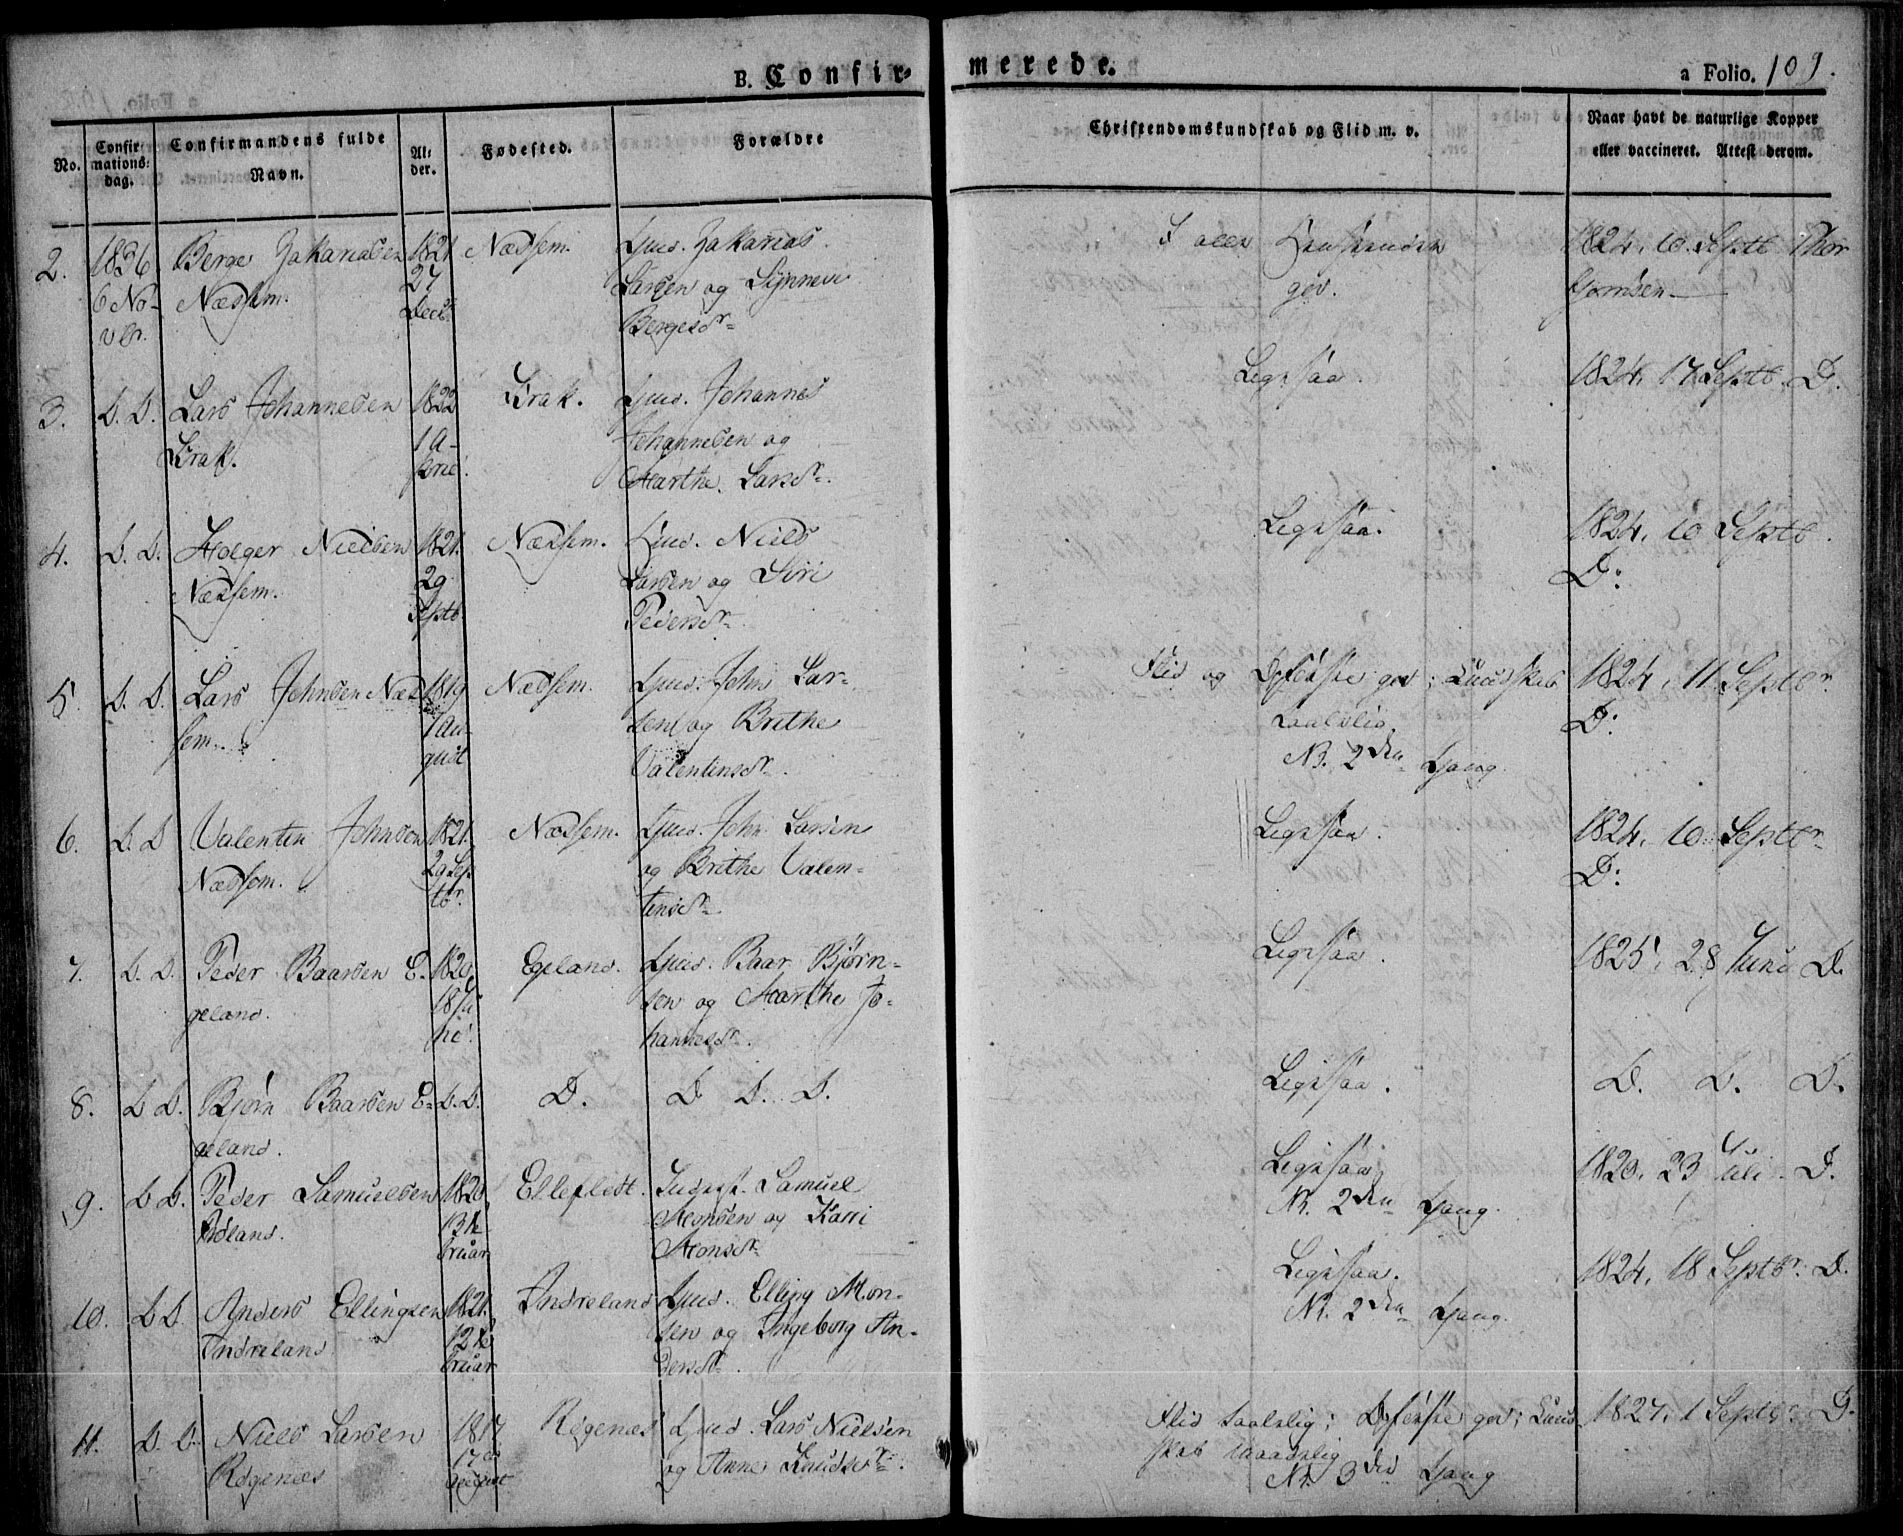 B. Confir-
merede.
a Folio. 109.
No.
Confir
mations-
dag.
Confirmandens fulde
Navn.
Al-
der.
Fødested.
Forældre
Christendomskundskab og Flid m. v.
Naar havt de naturlige Kopper
eller vaccineret. Attest derom.
2.
1836
6 No-
vbr.
Berge Zakariasen
Næssem.
1821
27
Decbr
Næssem.
Gmd. Zakarias
Larsen og Synnevi
Bergesdr
I alle Henseender
god.
1824, 10. Septb. Thor
3.
D. D.
Lars Johannesen
Brak.
1822
1 A-
pril.
Brak.
Gmd. Johannes
Johannesen og
Marthe Larsdr.
Ligesaa.
1824, 17 Septb. D.
4.
D. D.
Holger Nielsen
Næssem.
1821.
29
Septb.
Næssem.
Gmd. Niels
Larsen og Siri
Pedersdr
Ligesaa.
1824, 10 Septb.
D:
5.
D. D.
Lars Johnsen Næs-
sem.
1819
1 Au-
gust
Næssem.
Gmd. John Lar-
sen og Brithe
Valentinsdr.
Flid og Opførsel god; Kundskab
taalelig
NB. 2den Gang.
1824, 11 Septbr.
D:
6.
D. D
Valentin Johnsen
Næssem.
1821.
29 Sep
tbr.
Næssem.
Gmd. John Larsen
og Brithe Valen-
tinsdr
Ligesaa.
1824, 10 Septbr
D:
7.
D. D.
Peder Baarsen E-
geland.
1820
18 Ju
ni.
Egeland.
Gmd. Baar Bjørn-
sen og Marthe Jo-
hannesdr.
Ligesaa.
1825, 28 Juni D.
8.
D D.
Bjørn Baarsen E-
geland.
D. D.
D.
D D. D.
Ligesaa.
D. D. D.
9.
D D.
Peder Samuelsen
1820
13 Fe
bruar
Ellefledt.
Indrst. Samuel
Monsen og Karri
Monsdr
Ligesaa
NB. 2den Gang.
1820, 23 Juli D.
10.
D D.
Anders Ellingsen
Indreland
1821.
12 Fe
bruar
Indreland
Gmd. Elling Mon-
sen og Ingeborg An-
dersdr.
Ligesaa.
NB. 2den Gang.
1824, 18 Septbr. D.
11.
D. D.
Niels Larsen
Røgenæs
1817
17de
August
Røgenæs
Gmd. Lars Nielsen
og Anne Knudsdr.
Flid taalelig; Opførsel god; Kund
skab maadelig
NB. 3die Gang
1827, 1 Septbr D.